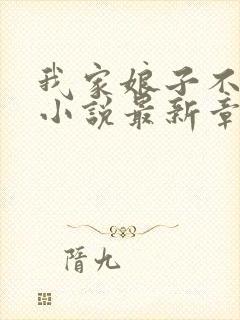 我家娘子不
小说最新章
隋九